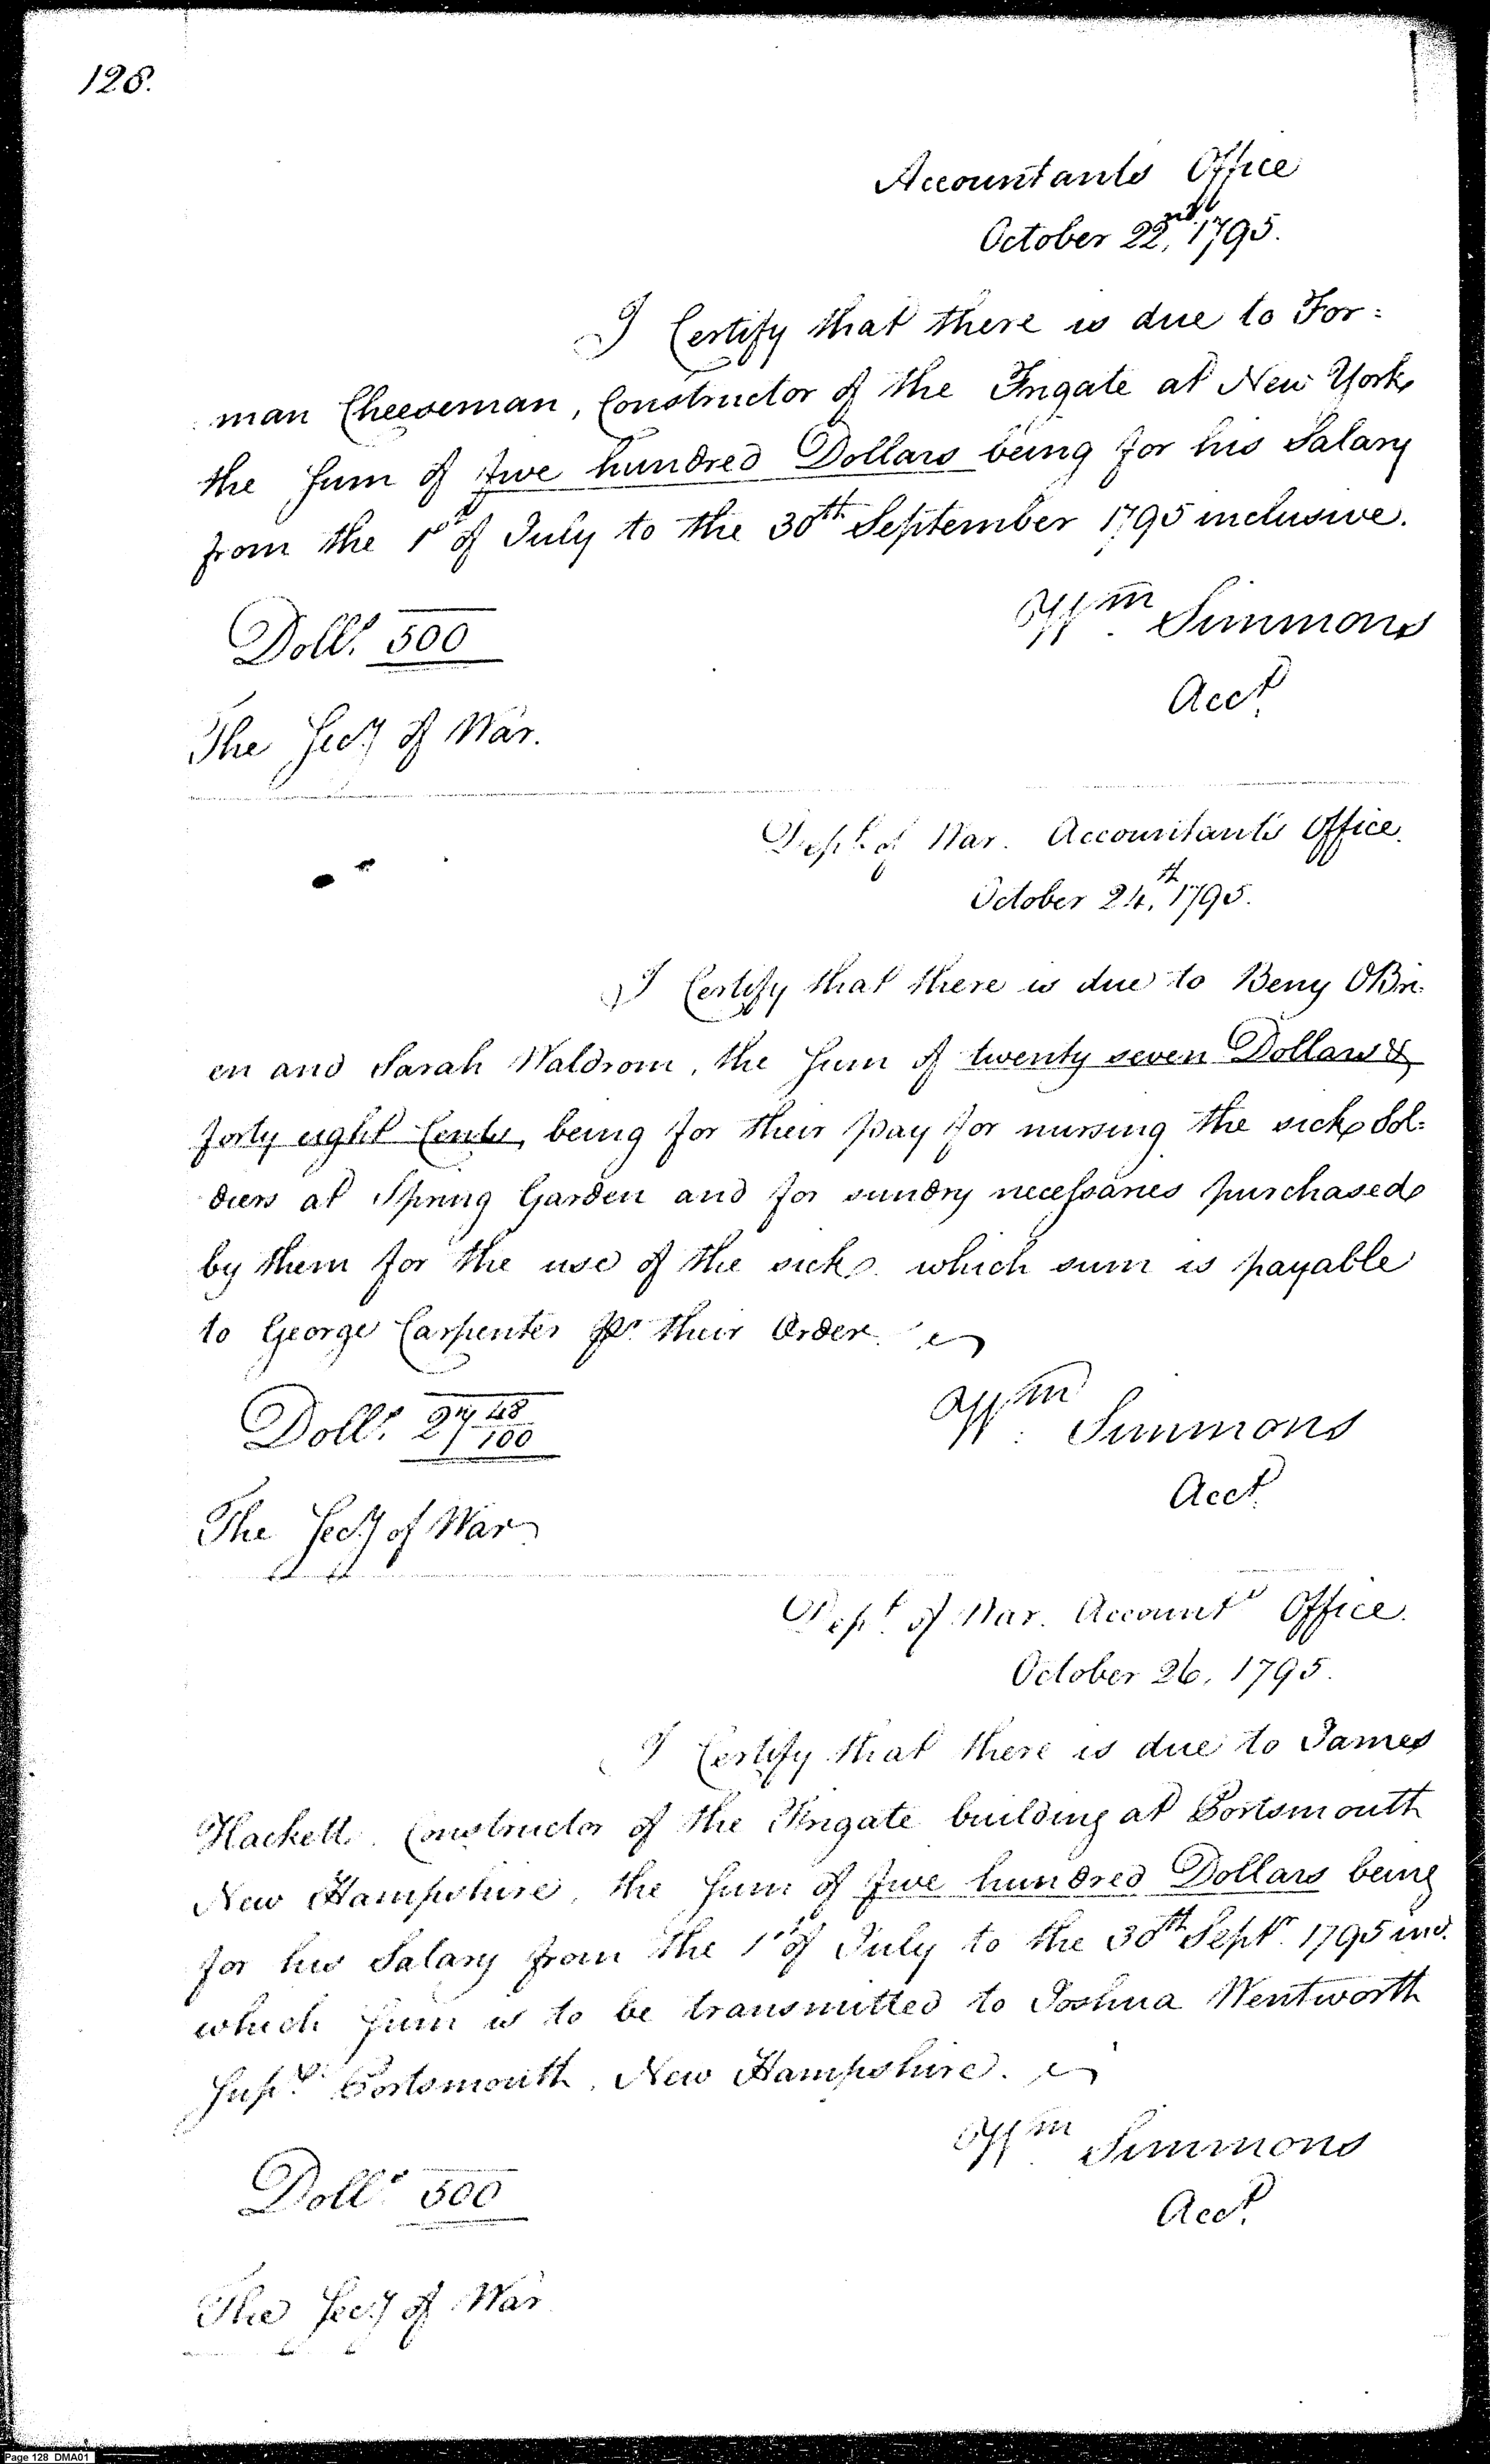 128.
Accountants Office
October 22nd, 1795.
I Certify that there is due to For=
man Cheeseman, Constructor of the Frigate at New York
the Sum of five hundred Dollars being for his Salary
from the 1st of July to the 30th September 1795 inclusive.
Wm Simmons
Dolls. 500
Acct.
The Secy of War.
Dept. of War. Accountant's Office.
October 24th, 1795.
I Certify that there is due to Beny OBri-
en and Sarah Waldrom, the Sum of twenty seven Dollars &
forty eight Cents, being for their pay for nursing the sick Sol-
diers at Spring Garden and for sundry necessaries purchased
by them for the use of the sick. which sum is payable
to George Carpenter pr. their Order.
Wm. Simmons
Dolls. 27 48/100
Acct.
The Secy of War
Dept. of War. Accountts Office.
October 26, 1795.
I Certify that there is due to James
Hackett. Constructor of the Frigate building at Portsmouth
New Hampshire, the Sum of five hundred Dollars being
for his Salary from the 1st of July to the 30th Septr. 1795 inc.
which Sum is to be transmitted to Joshua Wentworth
Supt. Portsmouth, New Hampshire.
Wm Simmons
Dolls. 500
Acct.
The Secy of War
Page 128 DMA01